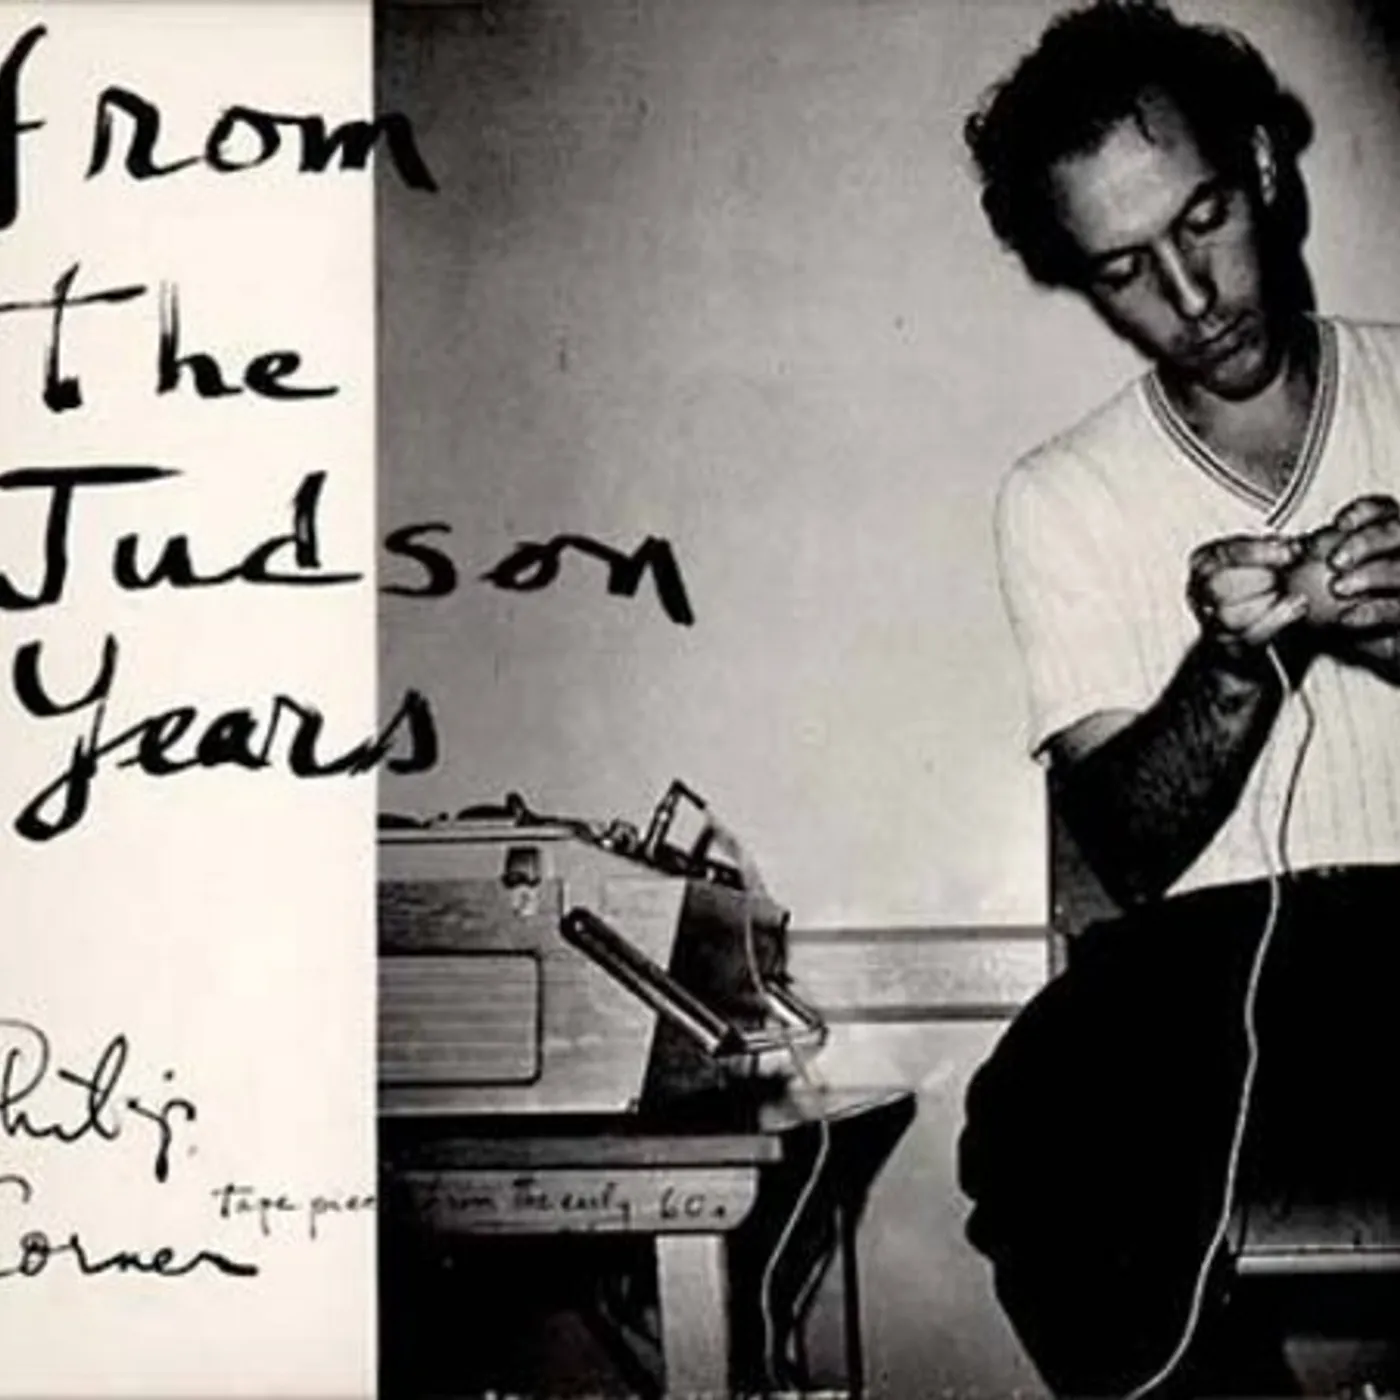 from
the
Judson
Years
Philip
Corner
tape pieces from the early 60s